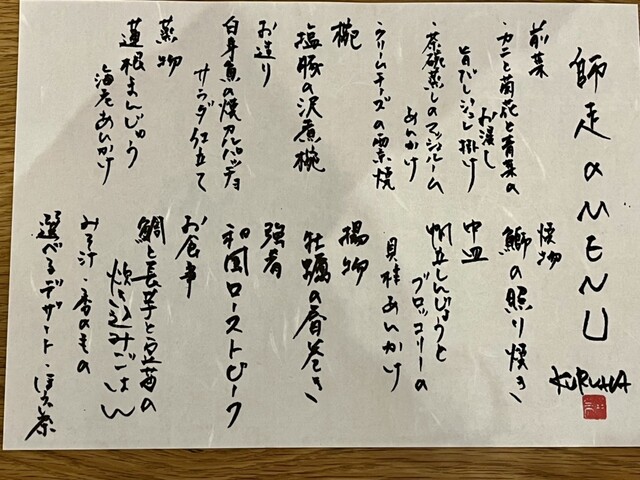 師走のMENU
前菜
・カニと菊花と青菜の
お浸し
旨だしジュレ掛け
・茶碗蒸しのマッシュルーム
あんかけ
・クリームチーズの雲焼
椀
塩豚の沢煮椀
お造り
白身魚の焼カルパッチョ
サラダ仕立て
蒸物
蓮根まんじゅう
海老あんかけ
焼物
鰤の照り焼き
中皿
帆立しんじょうと
ブロッコリーの
貝柱あんかけ
揚物
牡蠣の春巻き
強肴
和風ローストビーフ
お食事
鯛と長芋と豆苗の
炊き込みごはん
みそ汁・香のもの
選べるデザート・ほうじ茶
KURUHA